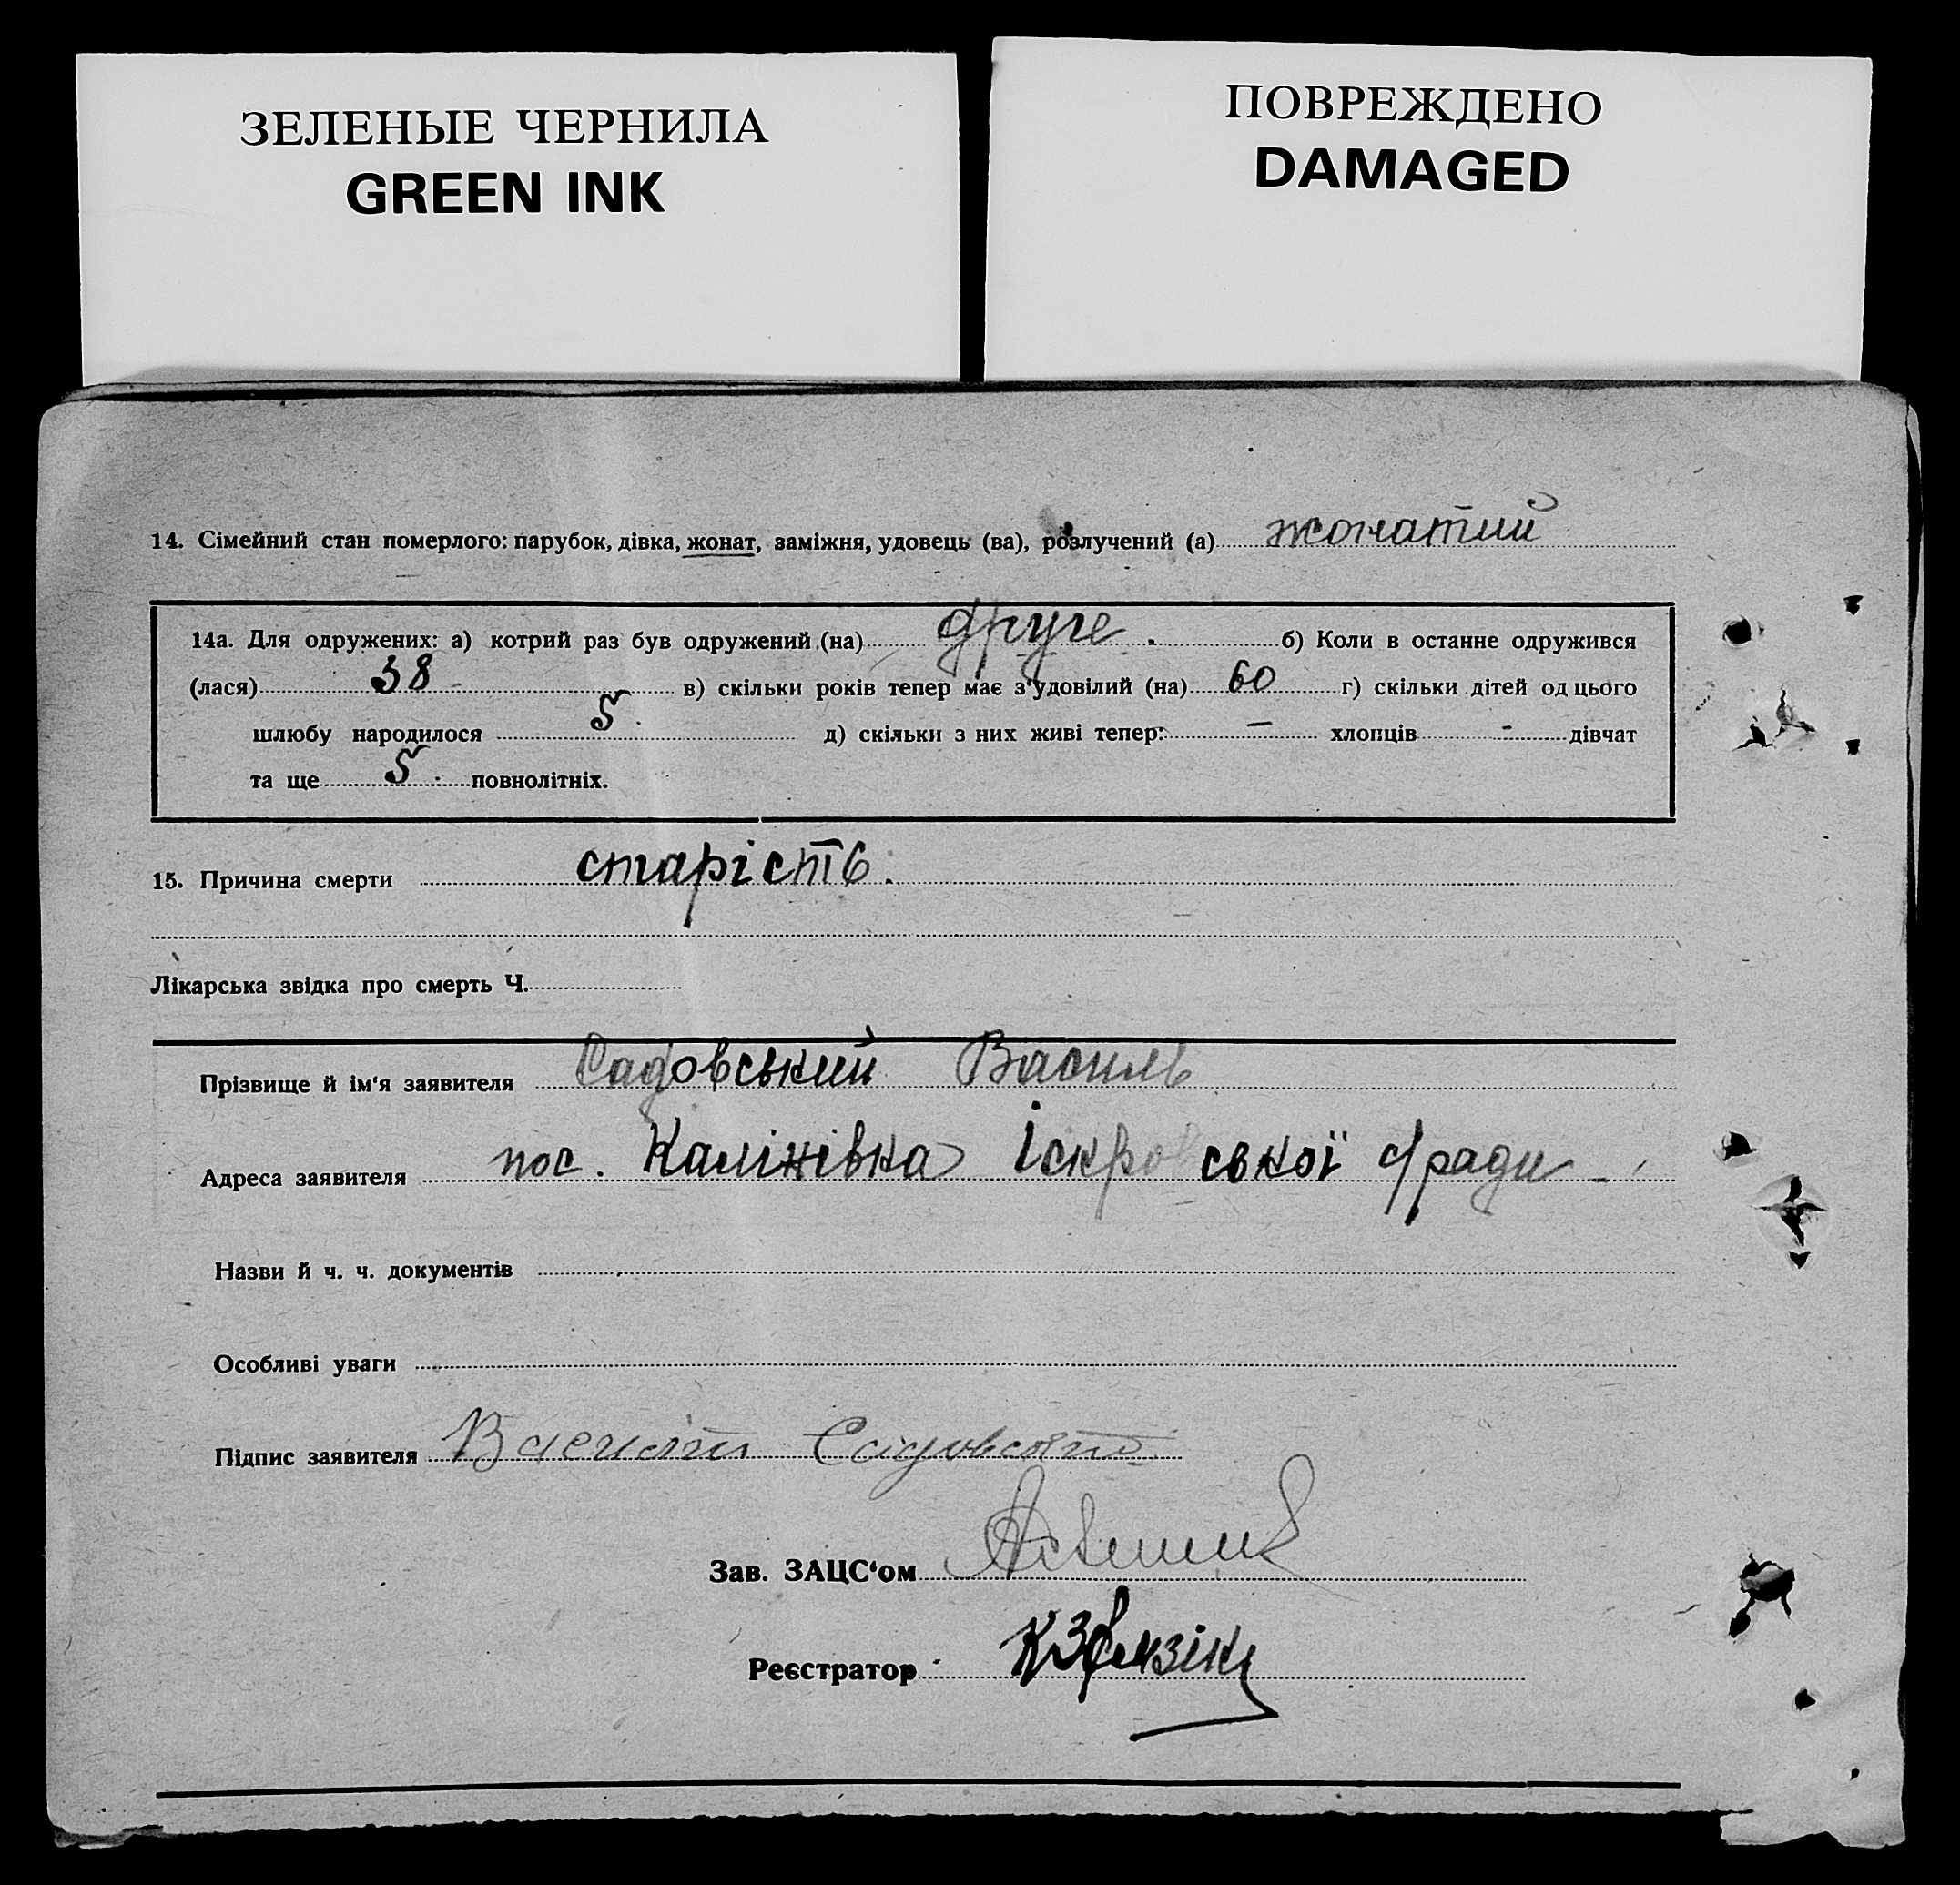 ЗЕЛЕНЫЕ ЧЕРНИЛА
GREEN INK
ПОВРЕЖДЕНО
DAMAGED
14. Сімейний стан померлого: парубок, дівка, жонат, заміжня, удовець (ва), розлучений (а) жонатий
14а. Для одружених: а) котрий раз був одружений (на) друге. б) Коли в останне одружився
(лася) 38 в) скільки років тепер має з'удовілий (на) 60 г) скільки дітей од цього
шлюбу народилося 5. д) скільки з них живі тепер: — хлопців - дівчат
та ще 5. повнолітніх.
15. Причина смерти старість.
Лікарська звідка про смерть Ч.
Прізвище й ім'я заявителя Садовський Василь
Адреса заявителя пос. Калінівка Іскровської с/ради
Назви й ч. ч. документів
Особливі уваги
Підпис заявителя
Зав. ЗАЦС'ом
Реєстратор